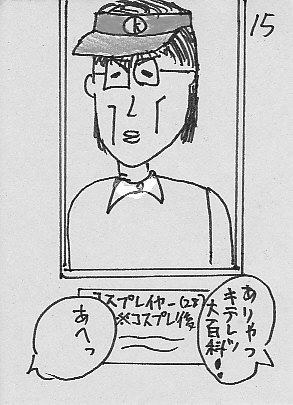 15
コスプレイヤー(28)
※コスプレ後
ありやっ
キテレツ
大百科!!
あへっ